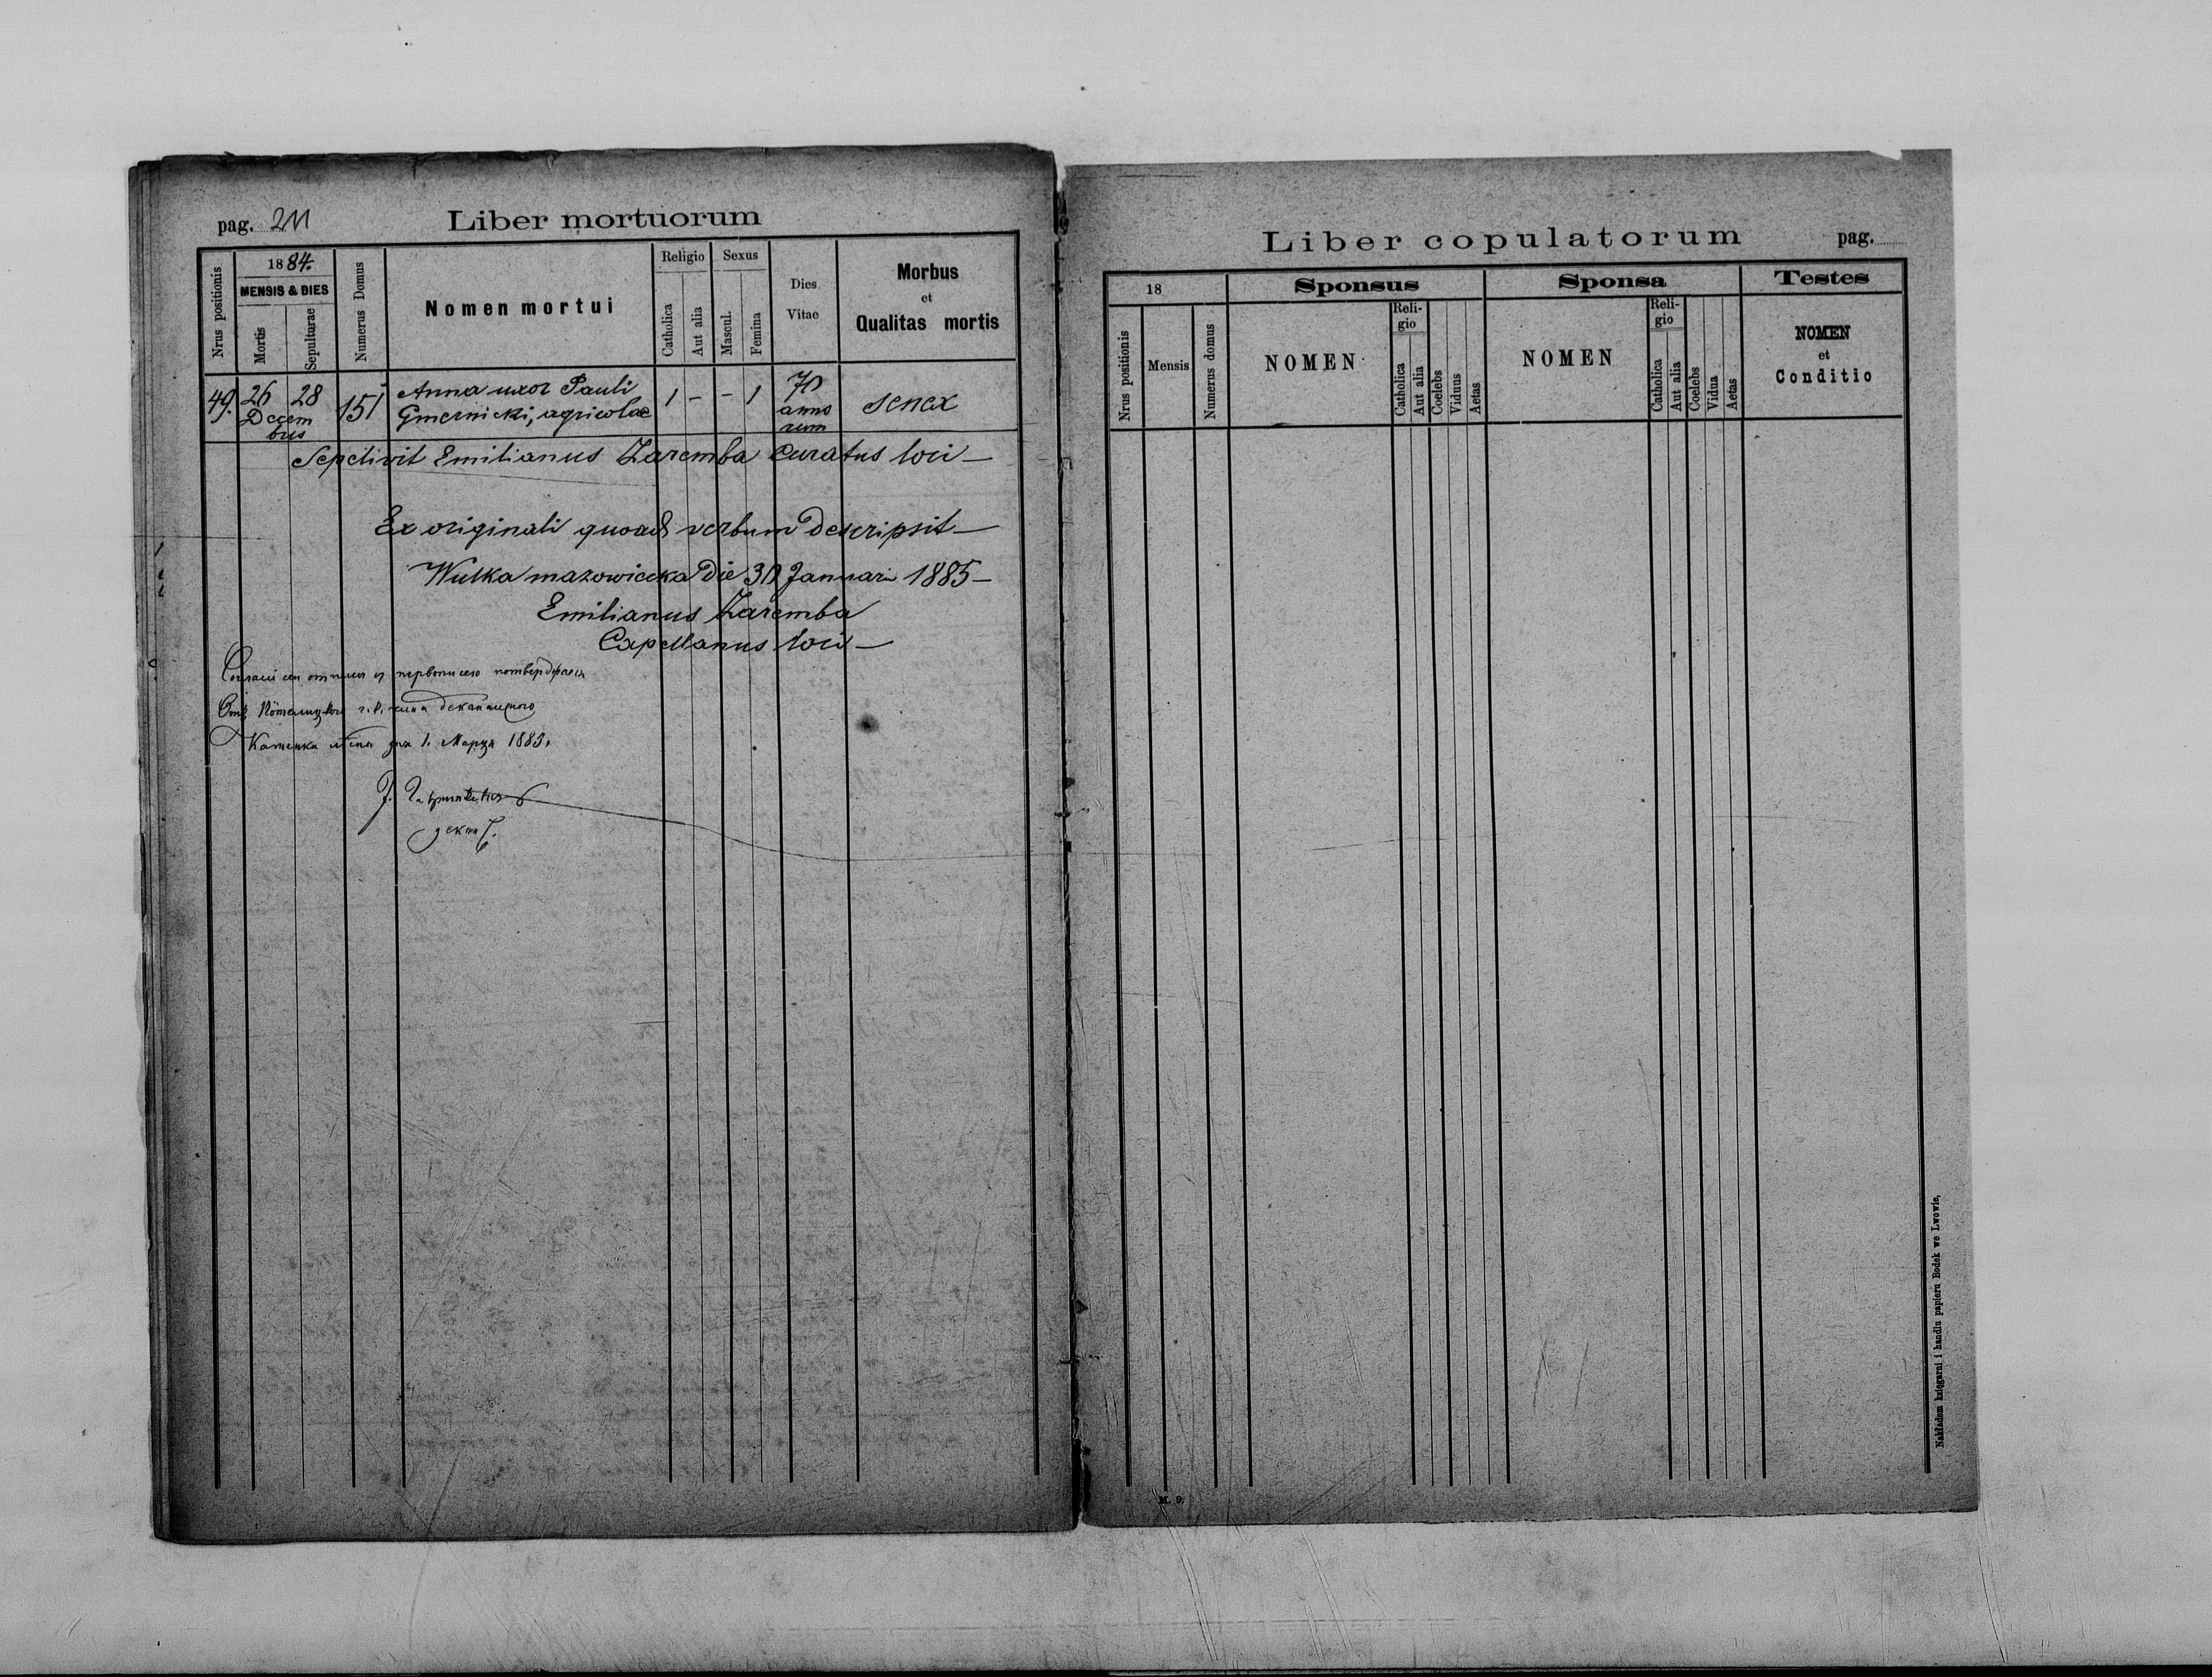 pag. 211
Liber mortuorum
Nrus positionis
1884.
MENSIS & DIES
Mortis
Sepulturae
Numerus Domus
Nomen mortui
Religio
Catholica
Aut alia
Sexus
Mascul.
Femina
Dies
Vitae
Morbus
et
Qualitas mortis
49. 26 28 151 Anna uxor Pauli 1 - - 1 70 senex
Decem Gmernicki, agricolae anno
bris rum
Sepelivit Emilianus Zaremba Curatus loci —
Ex originali quoad verbum descripsit —
Wulka mazowiecka die 30 Januari 1885 —
Emilianus Zaremba
Capellanus loci —
дня 1. Марця 1885.
декан
Liber copulatorum
pag.
18
Nrus positionis
Mensis
Numerus domus
Sponsus
NOMEN
Reli-
gio
Catholica
Aut alia
Coelebs
Viduus
Aetas
Sponsa
NOMEN
Reli-
gio
Catholica
Aut alia
Coelebs
Vidua
Aetas
Testes
NOMEN
et
Conditio
M. 9.
Nakładem księgarni i handlu papieru Bodek we Lwowie,